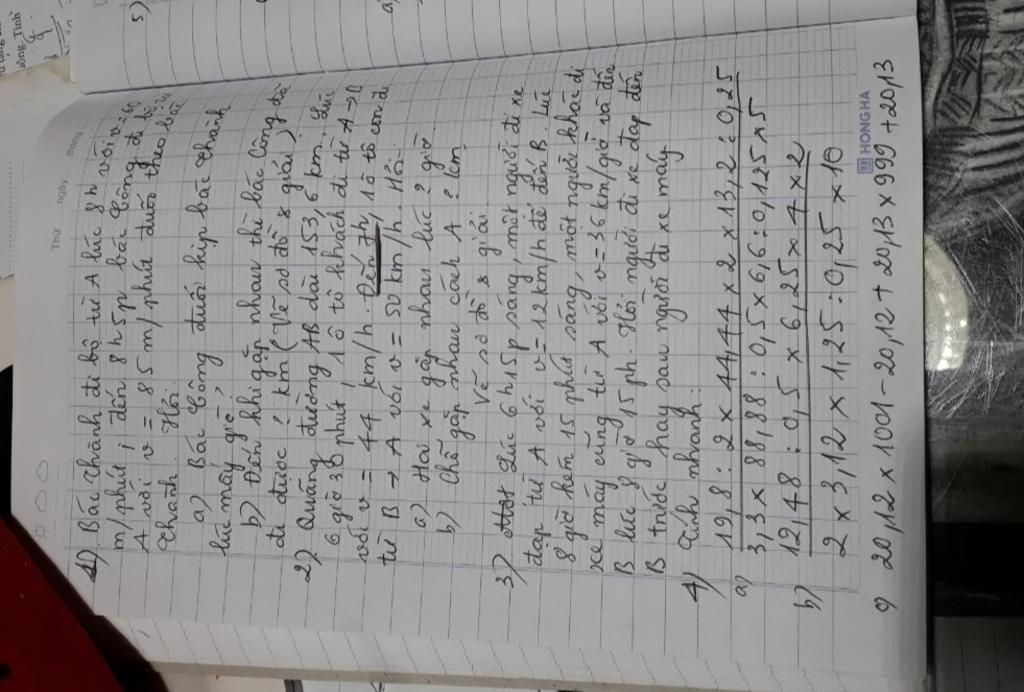 Thứ ngày tháng
1) Bác Thành đi bộ từ A lúc 8h với v = 60
m/phút; đến 8h5p bác Công đi bộ từ
A với v = 85 m/phút đuổi theo bác
Thành. Hỏi:
a) Bác Công đuổi kịp bác Thành
lúc mấy giờ?
b) Đến khi gặp nhau thì bác Công đã
đi được ? km (Vẽ sơ đồ & giải)
2) Quãng đường AB dài 153,6 km. Lúc
6 giờ 30 phút, 1 ô tô khách đi từ A → B
với v = 44 km/h. 1 ô tô con đi
từ B → A với v = 50 km/h. Hỏi:
a) Hai xe gặp nhau lúc ? giờ
b) Chỗ gặp nhau cách A ? km.
Vẽ sơ đồ & giải.
3) Lúc 6h15p sáng, một người đi xe
đạp từ A với v = 12 km/h để đến B. Lúc
8 giờ kém 15 phút sáng, một người khác đi
xe máy cũng từ A với v = 36 km/giờ và đến
B lúc 8 giờ 15 ph. Hỏi người đi xe đạp đến
B trước hay sau người đi xe máy.
4) Tính nhanh:
a) 19,8 : 2 x 44,44 x 2 x 13,2 : 0,25
3,3 x 88,88 : 0,5 x 6,6 : 0,125 x 5
b) 12,48 : 0,5 x 6,25 x 4 x 2
2 x 3,12 x 1,25 : 0,25 x 10
c) 20,12 x 1001 - 20,12 + 20,13 x 999 + 20,13
HONG HA
5)
a)